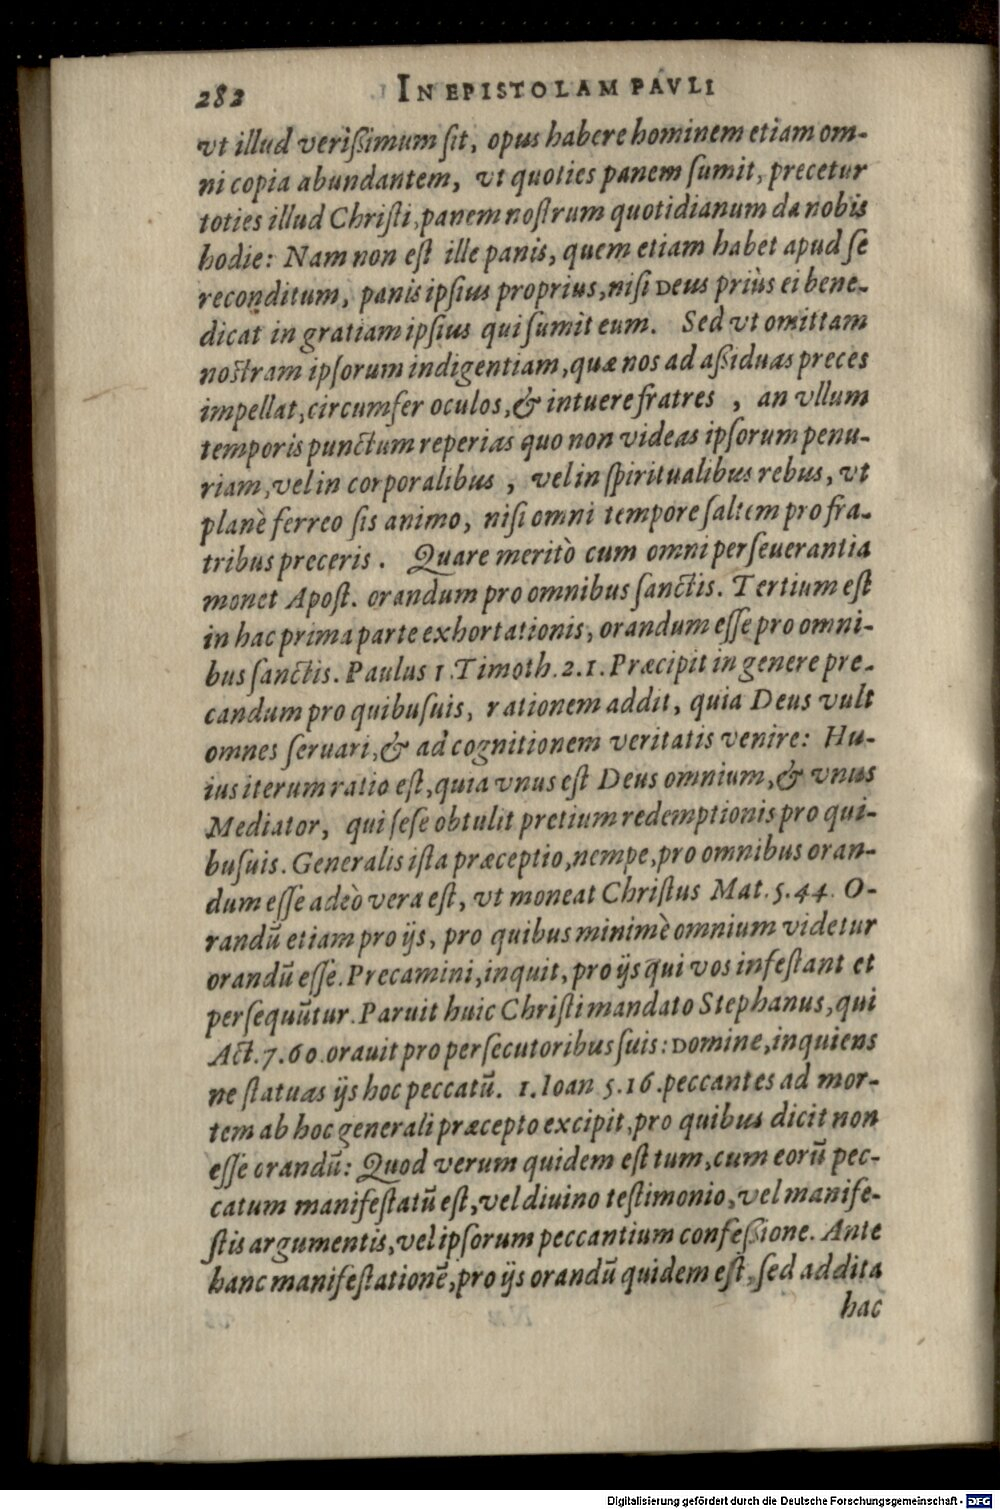 282 IN EPISTOLAM PAVLI
vt illud verißimum ſit, opus habere hominem etiam om-
ni copia abundantem, vt quoties panem ſumit, precetur
toties illud Chriſti, panem noſtrum quotidianum da nobis
hodie: Nam non eſt ille panis, quem etiam habet apud ſe
reconditum, panis ipſius proprius, niſi Deus priùs ei bene-
dicat in gratiam ipſius qui ſumit eum. Sed vt omittam
noſtram ipſorum indigentiam, quæ nos ad aßiduas preces
impellat, circumfer oculos, & intuere fratres , an vllum
temporis punctum reperias quo non videas ipſorum penu-
riam, vel in corporalibus , vel in ſpiritualibus rebus, vt
planè ferreo ſis animo, niſi omni tempore ſaltem pro fra-
tribus preceris . Quare meritò cum omni perſeuerantia
monet Apoſt. orandum pro omnibus ſanctis. Tertium eſt
in hac prima parte exhortationis, orandum eſſe pro omni-
bus ſanctis. Paulus 1. Timoth. 2. 1. Præcipit in genere pre-
candum pro quibuſuis, rationem addit, quia Deus vult
omnes ſeruari, & ad cognitionem veritatis venire: Hu-
ius iterum ratio eſt, quia vnus eſt Deus omnium, & vnus
Mediator, qui ſeſe obtulit pretium redemptionis pro qui-
buſuis. Generalis iſta præceptio, nempe, pro omnibus oran-
dum eſſe adeò vera eſt, vt moneat Chriſtus Mat. 5. 44. O-
randū etiam pro ijs, pro quibus minimè omnium videtur
orandū eſſe. Precamini, inquit, pro ijs qui vos infeſtant et
perſequūtur. Paruit huic Chriſti mandato Stephanus, qui
Act. 7. 60. orauit pro perſecutoribus ſuis: Domine, inquiens
ne ſtatuas ijs hoc peccatū. 1. Ioan 5. 16. peccantes ad mor-
tem ab hoc generali præcepto excipit, pro quibus dicit non
eſſe orandū: Quod verum quidem eſt tum, cum eorū pec-
catum manifeſtatū eſt, vel diuino teſtimonio, vel manife-
ſtis argumentis, vel ipſorum peccantium confeßione. Ante
hanc manifeſtationē, pro ijs orandū quidem eſt, ſed addita
hac
Digitalisierung gefördert durch die Deutsche Forschungsgemeinschaft - DFG